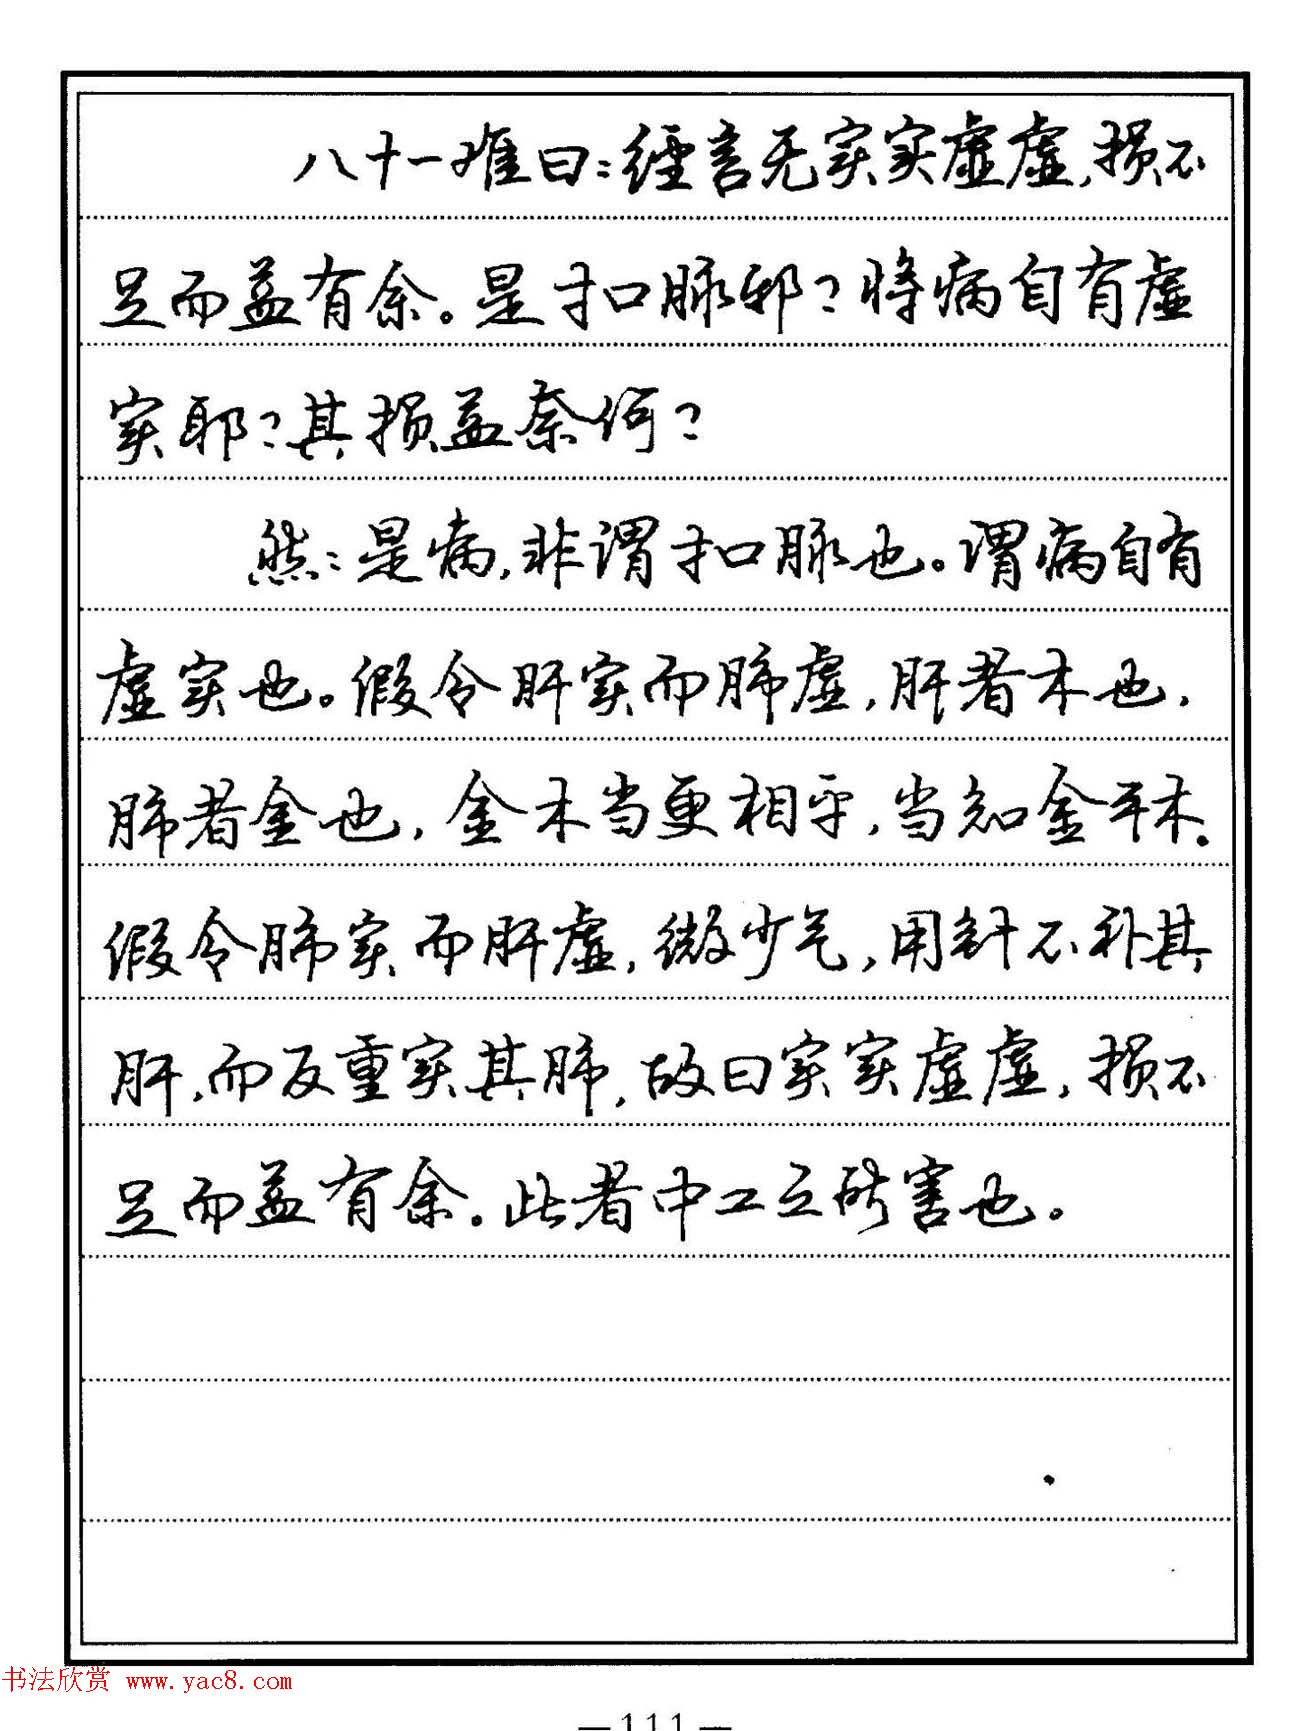 八十一难曰:经言无实实虚虚,损不
足而益有余。是寸口脉邪?将病自有虚
实耶?其损益奈何?
然:是病,非谓寸口脉也。谓病自有
虚实也。假令肝实而肺虚,肝者木也,
肺者金也,金木当更相平,当知金平木。
假令肺实而肝虚,微少气,用针不补其
肝,而反重实其肺,故曰实实虚虚,损不
足而益有余。此者中工之所害也。
书法欣赏 www.yac8.com
—111—